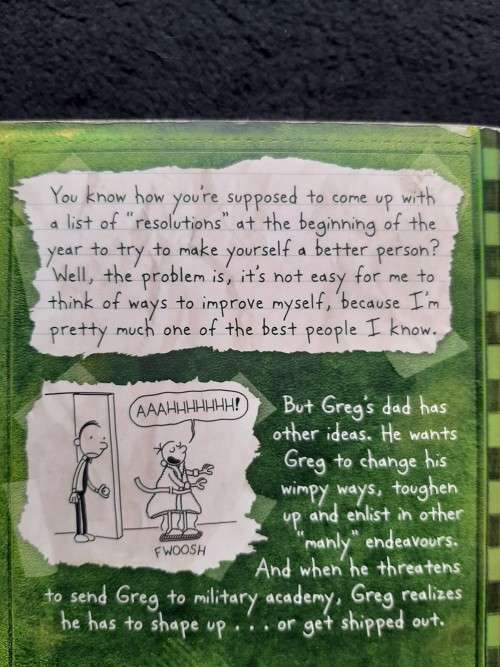 You know how you're supposed to come up with
a list of "resolutions" at the beginning of the
year to try to make yourself a better person?
Well, the problem is, it's not easy for me to
think of ways to improve myself, because I'm
pretty much one of the best people I know.
AAAHHHHHHH!
FWOOSH
But Greg's dad has
other ideas. He wants
Greg to change his
wimpy ways, toughen
up and enlist in other
"manly" endeavours.
And when he threatens
to send Greg to military academy, Greg realizes
he has to shape up . . . or get shipped out.